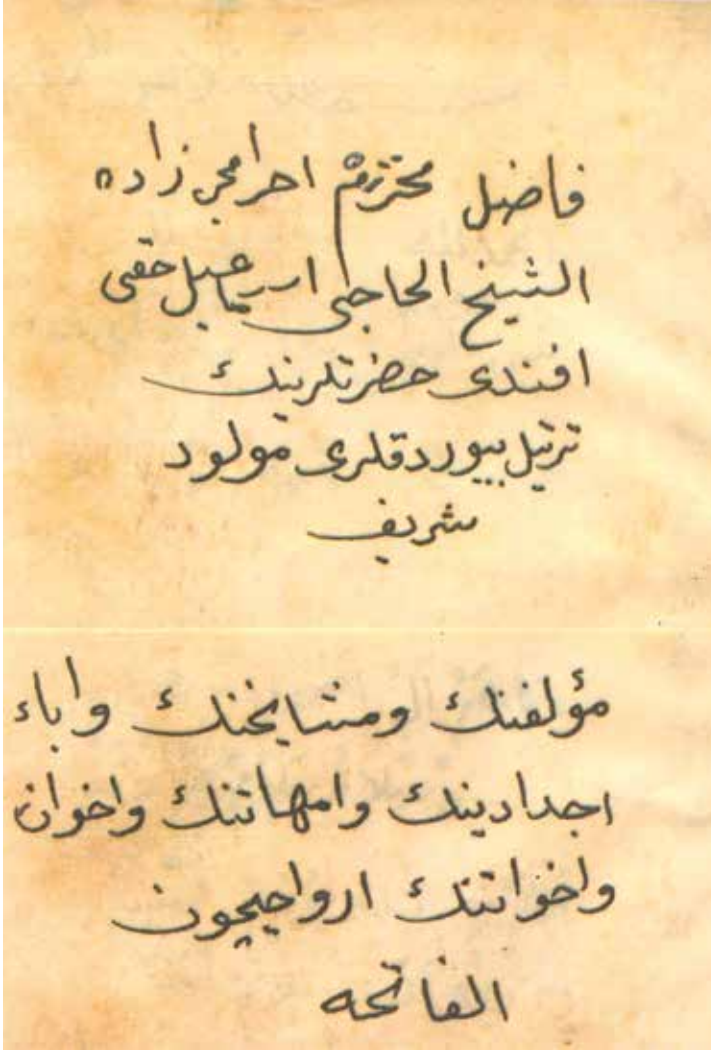 فاضل محترم احرامجى زاده
الشيخ الحاجى اسماعيل حقى
افندى حضرتلرينك
ترتيل بيوردقلرى مولود
شريف
مؤلفنك ومشايخنك واباء
اجدادينك وامهاتنك واخوان
واخواتنك ارواحيچون
الفاتحه